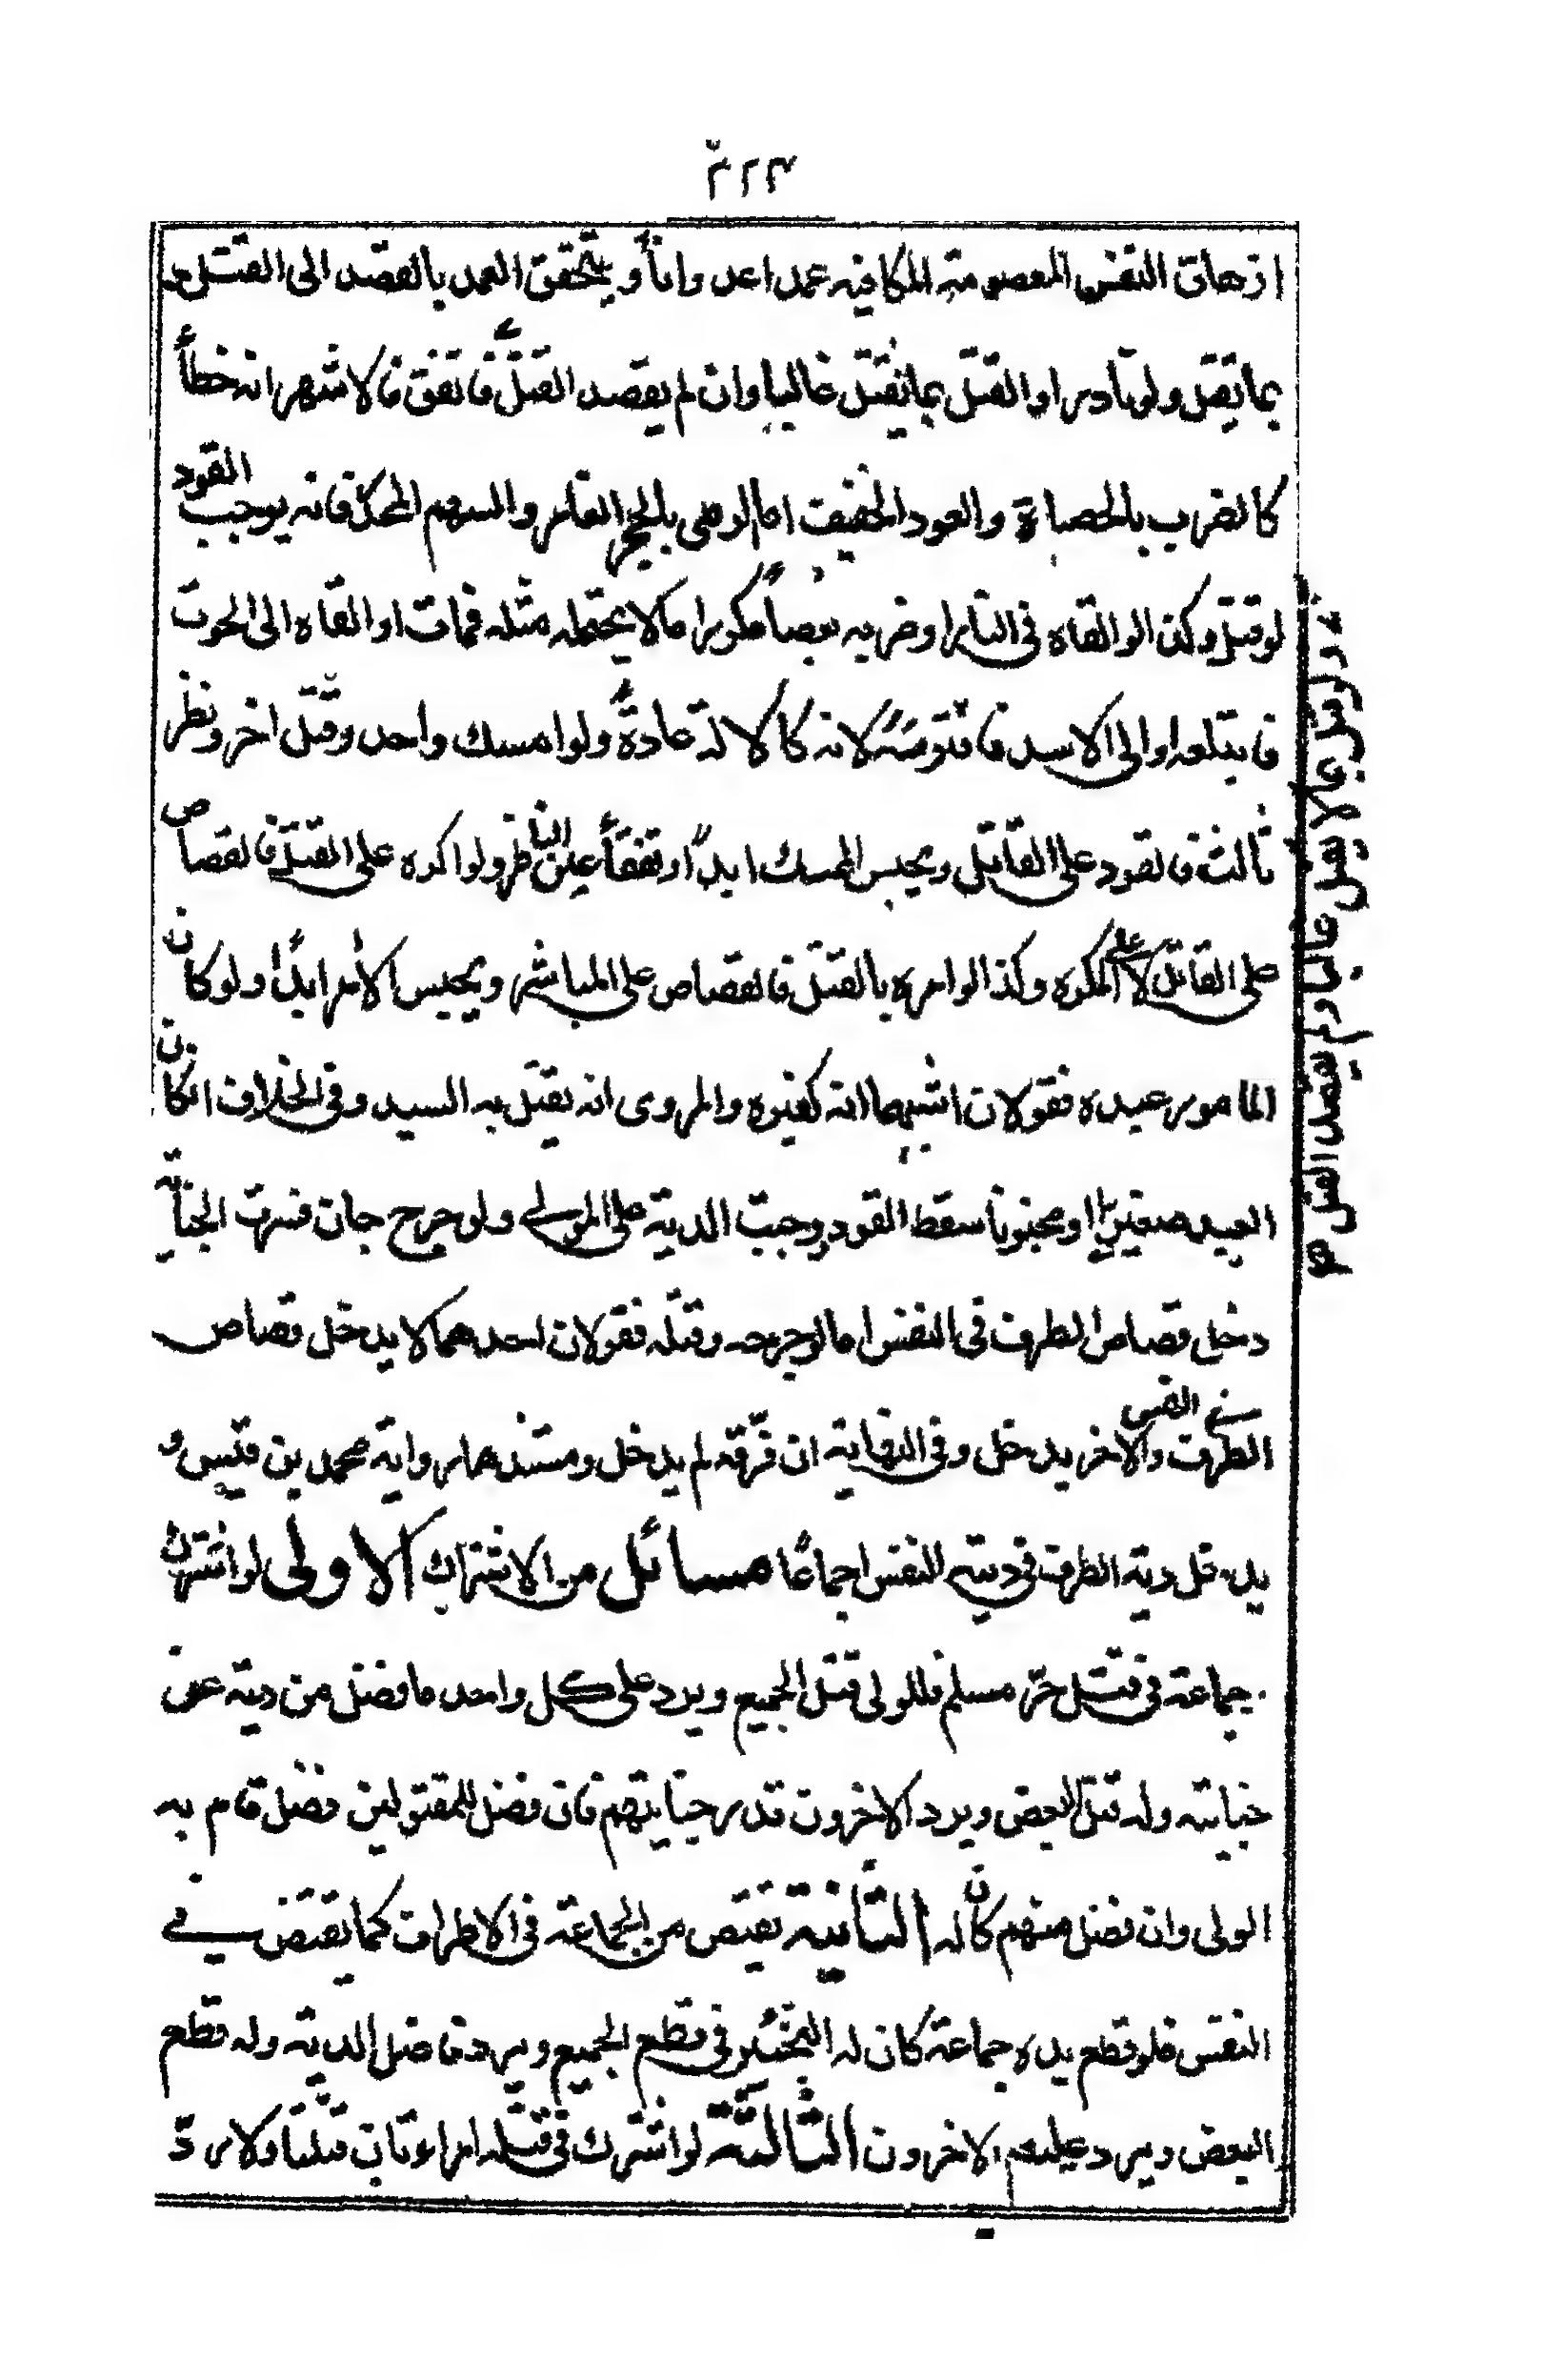 ٣٢٣
ازهاق النفس المعصومة المكافيه عمدا عدوانًا و يتحقق العمد بالقصد الى القتل
بما يقتل ولو نادرا او القتل بما يقتل غالبا وان لم يقصد القتل فاتفق فالاشهر انه خطأ
كالضرب بالحصاة والعود الخفيف اما لو رمى بالحجر الغامر والسهم المحدد فانه يوجب القود
لو قتل وكذا لو القاه فى النار او ضربه بعصا مكررا ما لا يحتمله مثله فمات او القاه الى الحوت
فابتلعه او الى الاسد فافترسه لانه كالالة عادة ولو امسك واحد وقتل اخر ونظر
ثالث فالقود على القاتل ويحبس الممسك ابدًا وتفقأ عين الناظر ولو اكره على القتل فالقصاص
على القاتل لا على المكره وكذا لو امره بالقتل فالقصاص على المباشر ويحبس الامر ابدًا ولو كان
المامور عبده فقولان اشبههما انه كغيره والمروى انه يقتل به السيد وفى الخلاف ان كان
العبد صغيرا او مجنونا سقط القود ووجبت الدية على المولى ولو جرح جان فسرت الجناية
دخل قصاص الطرف فى النفس اما لو جرحه وقتله فقولان احدهما لا يدخل قصاص
الطرف فى النفس والاخر يدخل وفى النهاية ان فرّقه لم يدخل ومستندها رواية محمد بن قيس و
يدخل دية الطرف فى دية النفس اجماعًا مسائل من الاشتراك الاولى لو اشترك
جماعة فى قتل حرّ مسلم فللولى قتل الجميع ويرد على كل واحد ما فضل من دية عن
جنايته وله قتل البعض ويرد الاخرون قدر جنايتهم فان فضل للمقتولين فضل قام به
الولى وان فضل منهم كان له الثانية تقتص من الجماعة فى الاطراف كما يقتص فى
النفس فلو قطع يده جماعة كان له التخيير فى قطع الجميع ويرد فاضل الدية وله قطع
البعض ويرد عليهم الاخرون الثالثة لو اشترك فى قتله امراءتان قتلتا ولا ردّ
بما لا يقتل غالبا ولم يقصد القتل